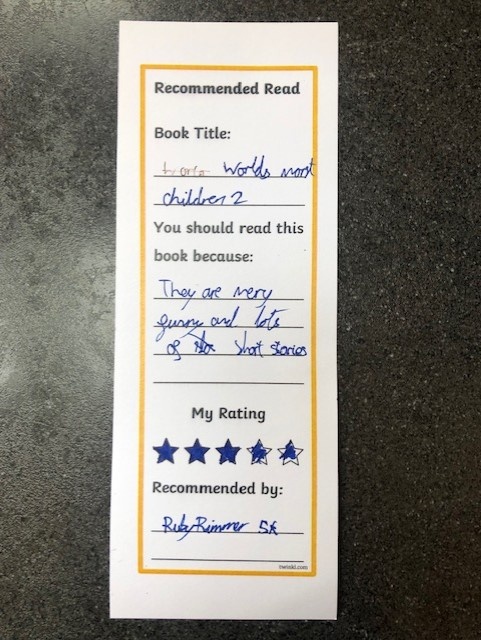 Recommended Read
Book Title:
Worlds worst
children 2
You should read this
book because:
They are very
funny and lots
of short stories
My Rating
Recommended by:
Ruby Rimmer 5K
twinkl.com